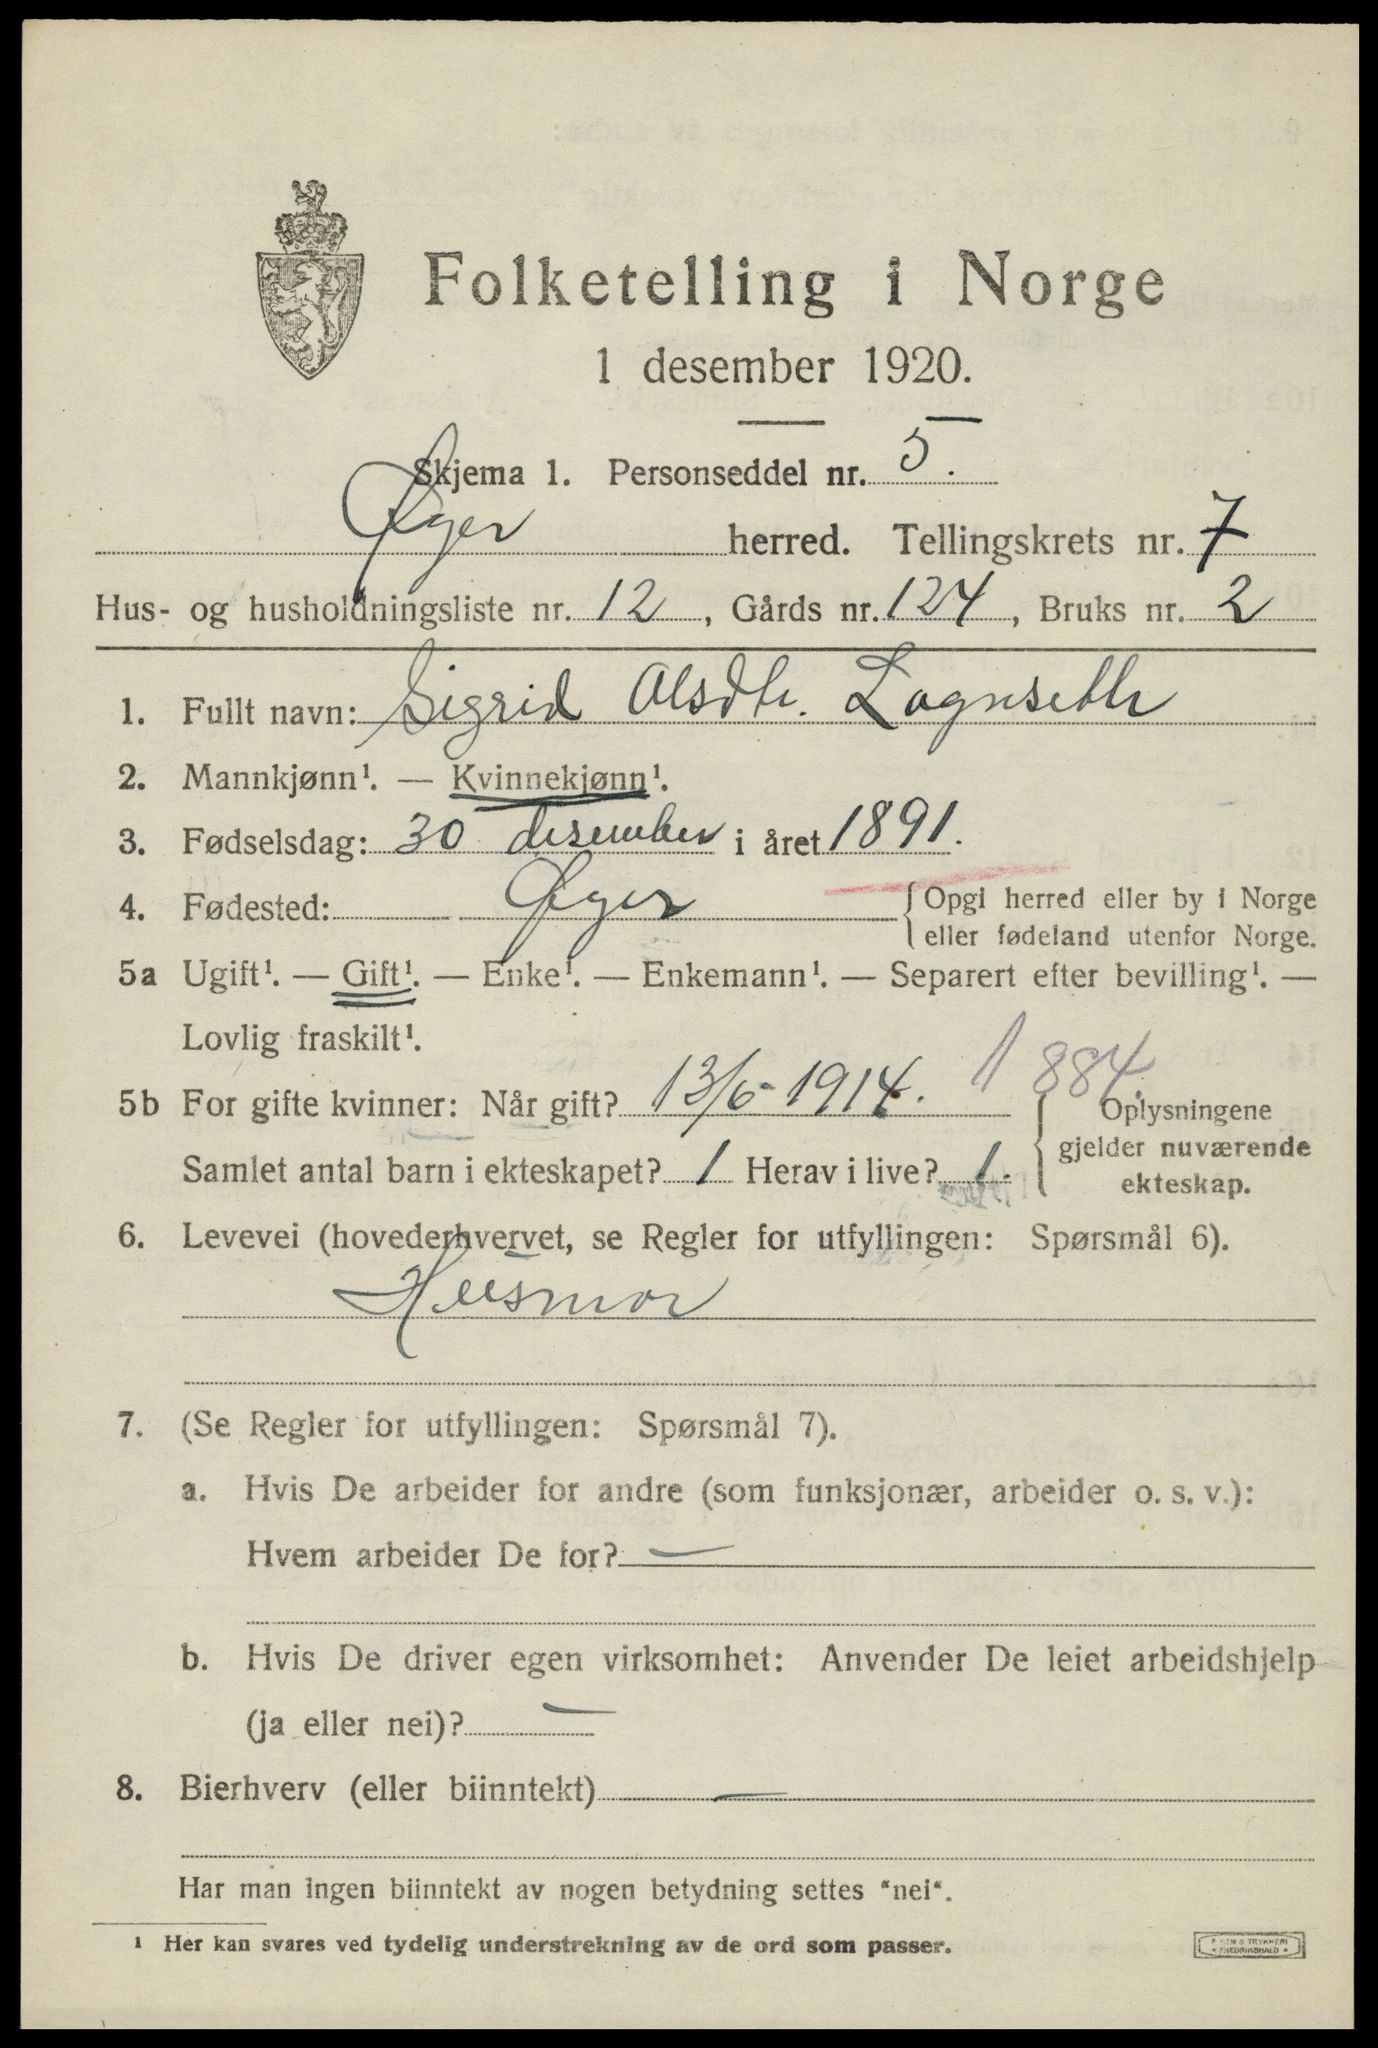 Folketelling i Norge
1 desember 1920.
Skjema 1. Personseddel nr. 5.
Øyer herred. Tellingskrets nr. 7
Hus- og husholdningsliste nr. 12, Gårds nr. 124, Bruks nr. 2
1. Fullt navn: Sigrid Olsdtr.
2. Mannkjønn¹. — Kvinnekjønn¹.
3. Fødselsdag: 30 desember i året 1891.
4. Fødested: Øyer {Opgi herred eller by i Norge
eller fødeland utenfor Norge.
5a Ugift¹. — Gift¹. — Enke¹. — Enkemann¹. — Separert efter bevilling¹. —
Lovlig fraskilt¹.
1 884.
5b For gifte kvinner: Når gift? 13/6-1914. {Oplysningene
gjelder nuværende
Samlet antal barn i ekteskapet? 1 Herav i live? 1.
ekteskap.
6. Levevei (hovederhvervet, se Regler for utfyllingen: Spørsmål 6).
Husmor
7. (Se Regler for utfyllingen: Spørsmål 7).
a. Hvis De arbeider for andre (som funksjonær, arbeider o. s. v.):
Hvem arbeider De for? —
b. Hvis De driver egen virksomhet: Anvender De leiet arbeidshjelp
(ja eller nei)? —
8. Bierhverv (eller biinntekt) —
Har man ingen biinntekt av nogen betydning settes “nei“.
¹ Her kan svares ved tydelig understrekning av de ord som passer.
TRYKKERI
FREDRIKSHALD